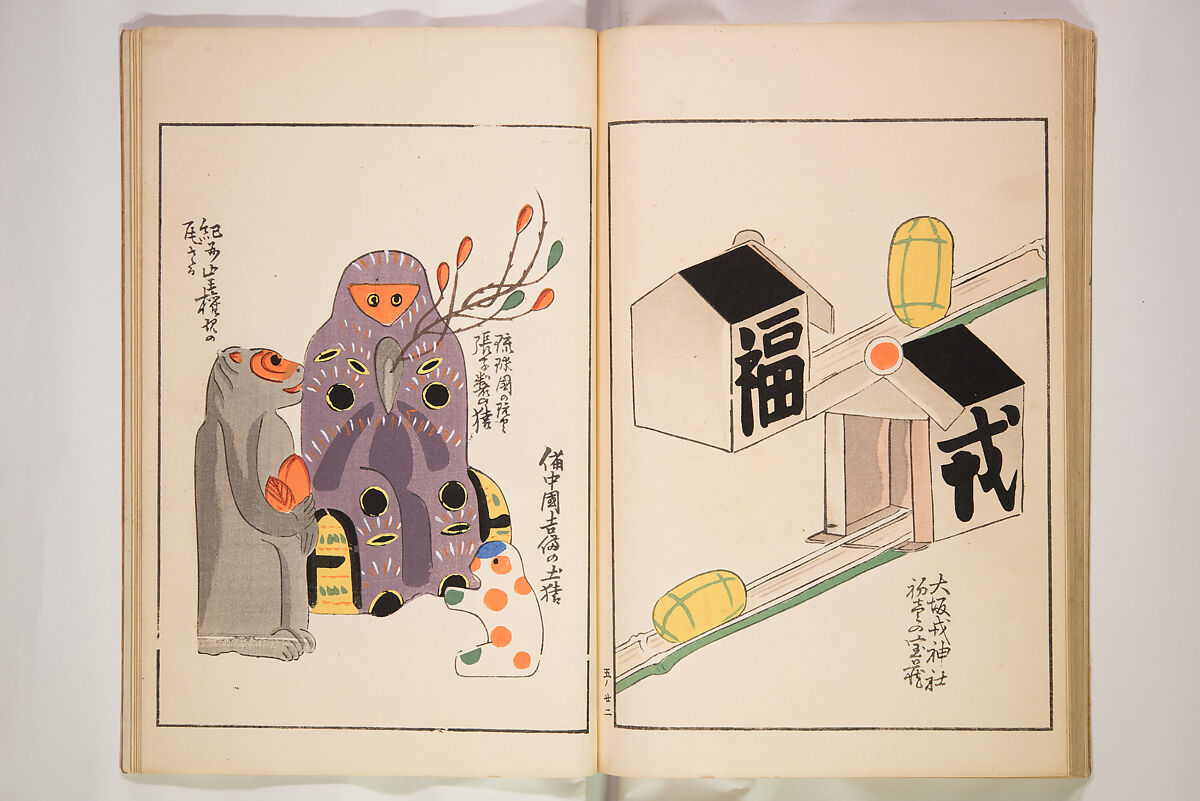 福
戎
大坂戎神社
の宝蔵
五ノ廿二
備中國吉備の土猿
琉球國の玩具
張子製の猿
紀州山王権現の
瓦さる